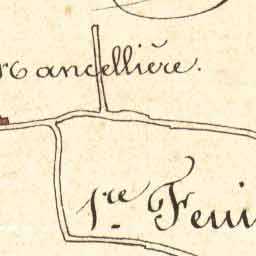 ancellière.
1re. Feui